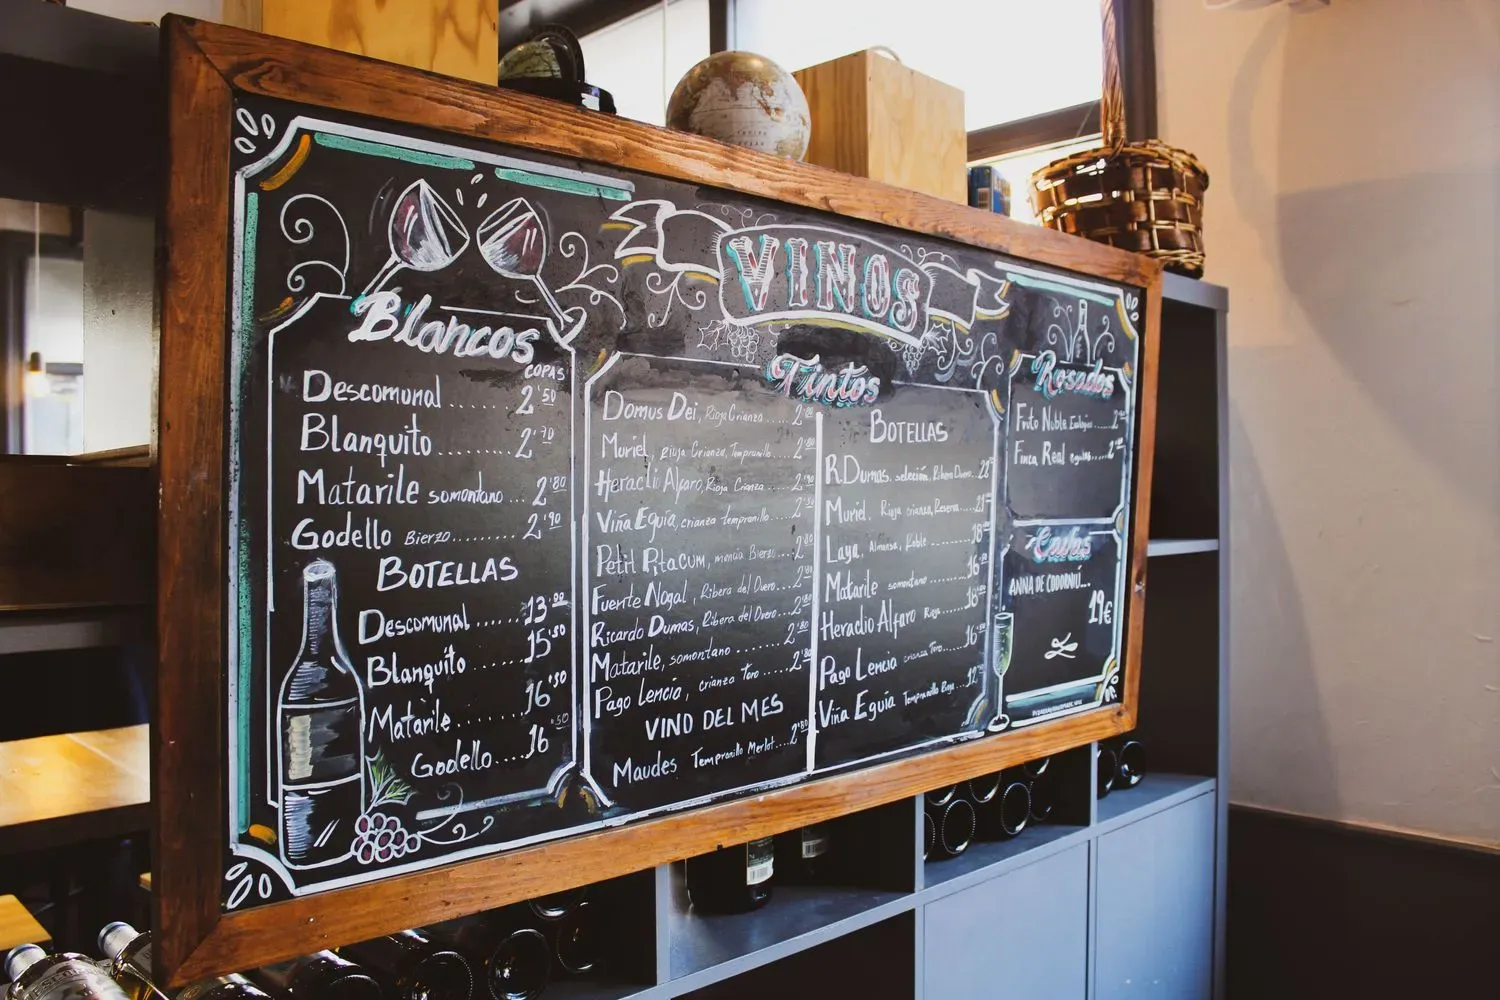 VINOS
Blancos
COPAS
Descomunal ...... 2'50
Blanquito ........ 2'70
Matarile somontano ... 2'80
Godello Bierzo ......... 2'90
BOTELLAS
Descomunal ...... 13'00
Blanquito ...... 15'50
Matarile ....... 16'50
Godello .... 16'50
Tintos
Domus Dei, Rioja Crianza ... 2'80
Muriel, Rioja Crianza, Tempranillo ... 2'80
Heraclio Alfaro, Rioja Crianza ...... 2'90
Viña Eguia, crianza tempranillo ..... 2'50
Petit Pitacum, mencia Bierzo .. 2'80
Fuente Nogal, Ribera del Duero. 2'80
Ricardo Dumas, Ribera del Duero. 2'80
Matarile, somontano ....... 2'80
Pago Lencia, crianza Toro ..... 2'80
VINO DEL MES
Maudes Tempranillo Merlot.. 2'80
BOTELLAS
R.Dumas, selección, Ribera Duero..
Muriel. Rioja crianza, Reserva ..... 21
Laya, Almansa, Roble .......... 18
Matarile somontano ........ 16
Heraclio Alfaro Rioja ..... 18
Pago Lencia crianza Toro ... 16
Viña Eguia Tempranillo Rioja... 12
Rosados
Fruto Noble Ecologico .... 2
Finca Real ..... 2
Cavas
ANNA DE CODORNIÚ...
19€